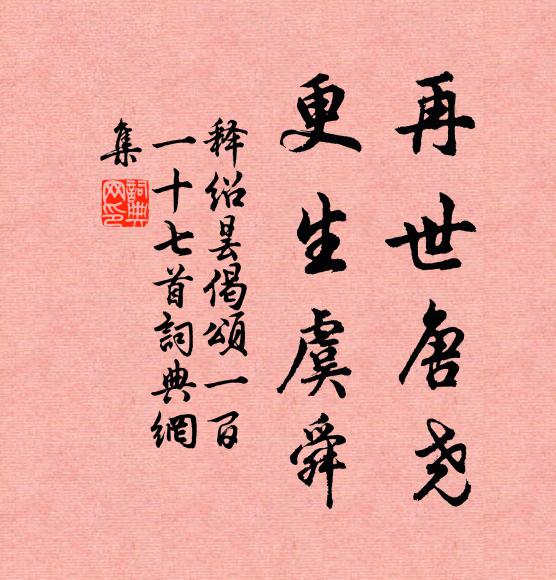 再世唐尧
更生虞舜
释绍昙偈颂一百
一十七首詞典網
集
詞典
网印